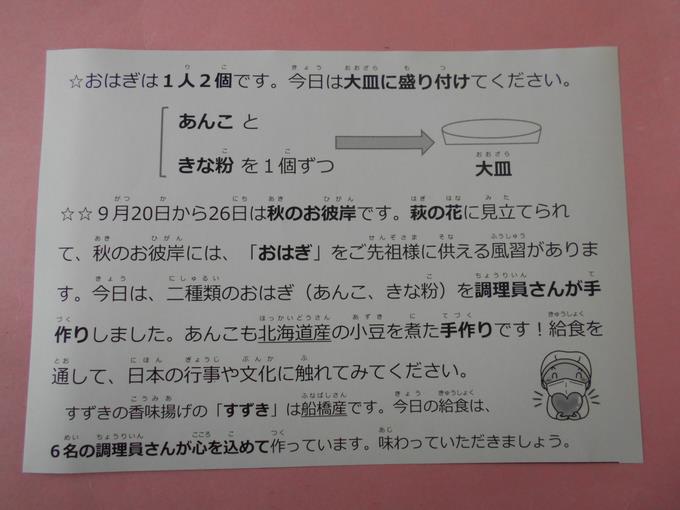 ☆おはぎは１人２個です。今日は大皿に盛り付けてください。
あんこ と
きな粉 を１個ずつ
大皿
☆☆９月20日から26日は秋のお彼岸です。萩の花に見立てられ
て、秋のお彼岸には、「おはぎ」をご先祖様に供える風習がありま
す。今日は、二種類のおはぎ（あんこ、きな粉）を調理員さんが手
作りしました。あんこも北海道産の小豆を煮た手作りです！給食を
通して、日本の行事や文化に触れてみてください。
すずきの香味揚げの「すずき」は船橋産です。今日の給食は、
６名の調理員さんが心を込めて作っています。味わっていただきましょう。